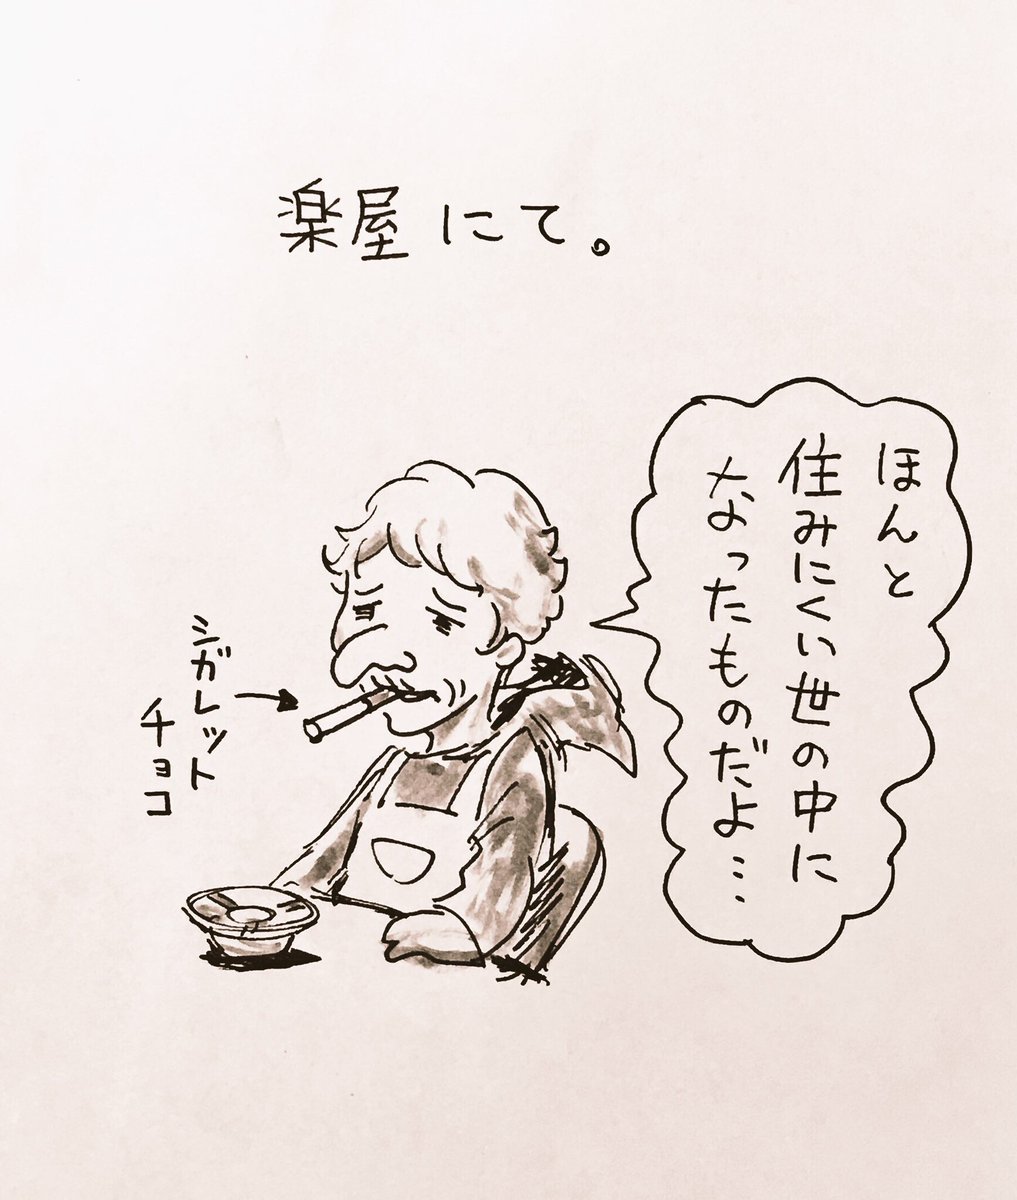 楽屋にて。
ほんと
住みにくい世の中に
なったものだよ…
シガレット
チョコ